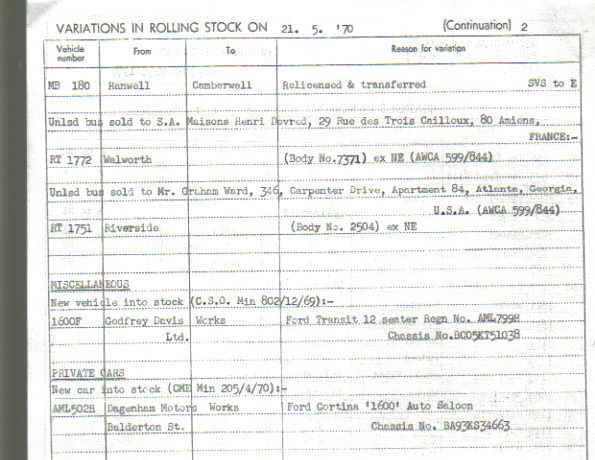 VARIATIONS IN ROLLING STOCK ON 21. 5. '70 (Continuation) 2
Vehicle number From To Reason for variation
MB 180 Hanwell Camberwell Relicensed & transferred SVS to E
Unlsd bus sold to S.A. Maisons Henri Devred, 29 Rue des Trois Cailloux, 80 Amiens,
FRANCE:-
RT 1772 Walworth (Body No.7371) ex NE (AWCA 599/844)
Unlsd bus sold to Mr. Graham Ward, 346, Carpenter Drive, Apartment 84, Atlanta, Georgia,
U.S.A. (AWCA 599/844)
RT 1751 Riverside (Body No. 2504) ex NE
MISCELLANEOUS
New vehicle into stock (C.S.O. Min 802/12/69):-
1600F Godfrey Davis Works Ford Transit 12 seater Regn No. AML799H
Ltd. Chassis No.BC05KT51038
PRIVATE CARS
New car into stock (CME Min 205/4/70):-
AML502H Dagenham Motors Works Ford Cortina '1600' Auto Saloon
Balderton St. Chassis No. BA93KS34663